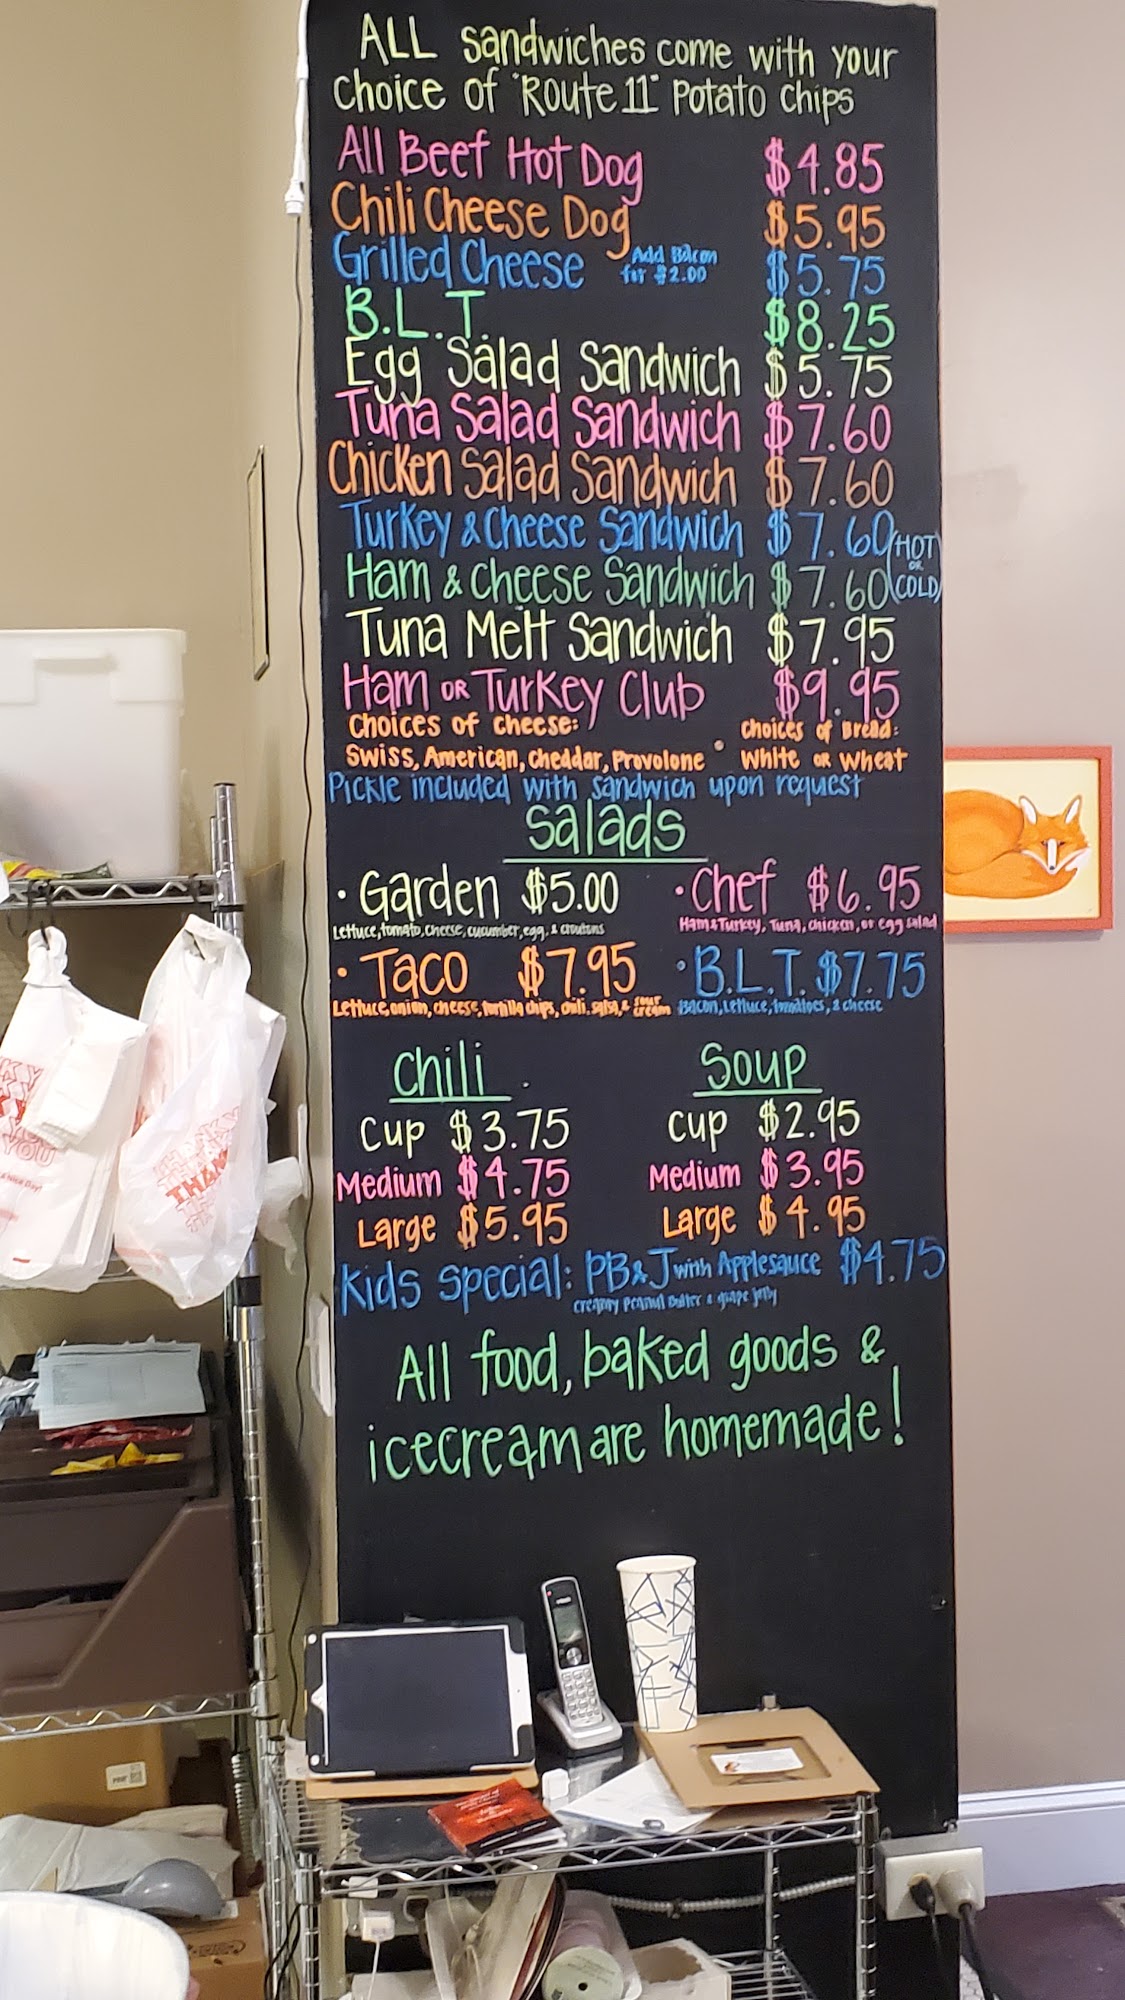 ALL sandwiches come with your
choice of "Route 11" Potato Chips
All Beef Hot Dog $4.85
Chili Cheese Dog $5.95
Grilled Cheese Add Bacon for $2.00 $5.75
B.L.T. $8.25
Egg Salad Sandwich $5.75
Tuna Salad Sandwich $7.60
Chicken Salad Sandwich $7.60
Turkey & Cheese Sandwich $7.60 (HOT
OR
Ham & Cheese Sandwich $7.60 COLD)
Tuna Melt Sandwich $7.95
Ham OR Turkey Club $9.95
Choices of cheese: Choices of Bread:
Swiss, American, Cheddar, Provolone • White or Wheat
Pickle included with sandwich upon request
Salads
• Garden $5.00 • Chef $6.95
Lettuce, tomato, cheese, cucumber, egg, & croutons Ham & Turkey, Tuna, chicken, or egg salad
• Taco $7.95 • B.L.T. $7.75
Lettuce, onion, cheese, tortilla chips, chili, salsa, & sour cream Bacon, Lettuce, tomatoes, & cheese
Chili Soup
Cup $3.75 Cup $2.95
Medium $4.75 Medium $3.95
Large $5.95 Large $4.95
Kids Special: PB&J with Applesauce $4.75
creamy peanut butter & grape jelly
All food, baked goods &
icecream are homemade!
YOU
THANK